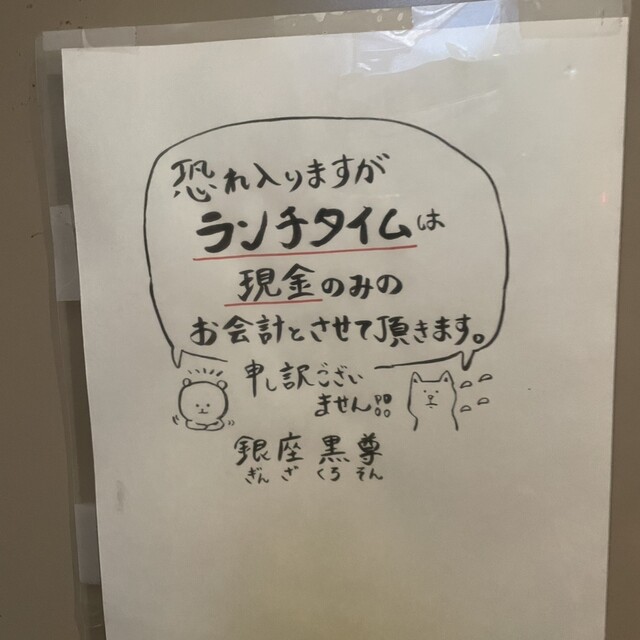 恐れ入りますが
ランチタイムは
現金のみの
お会計とさせて頂きます。
申し訳ござい
ません!!
銀座 黒尊
ぎんざ くろそん